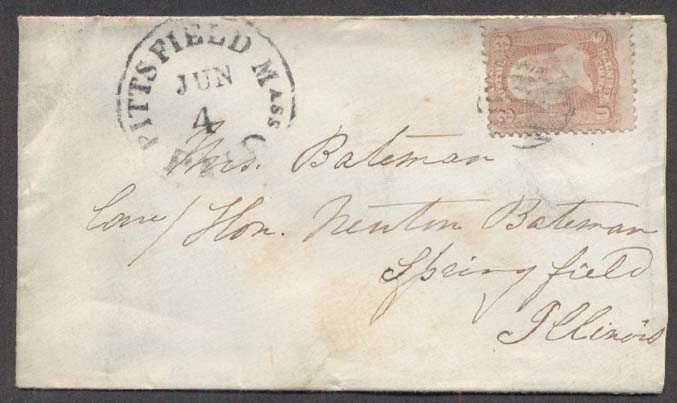 PITTSFIELD MASS
JUN
4
Mrs. Bateman
Care/ Hon. Newton Bateman
Springfield
Illinois